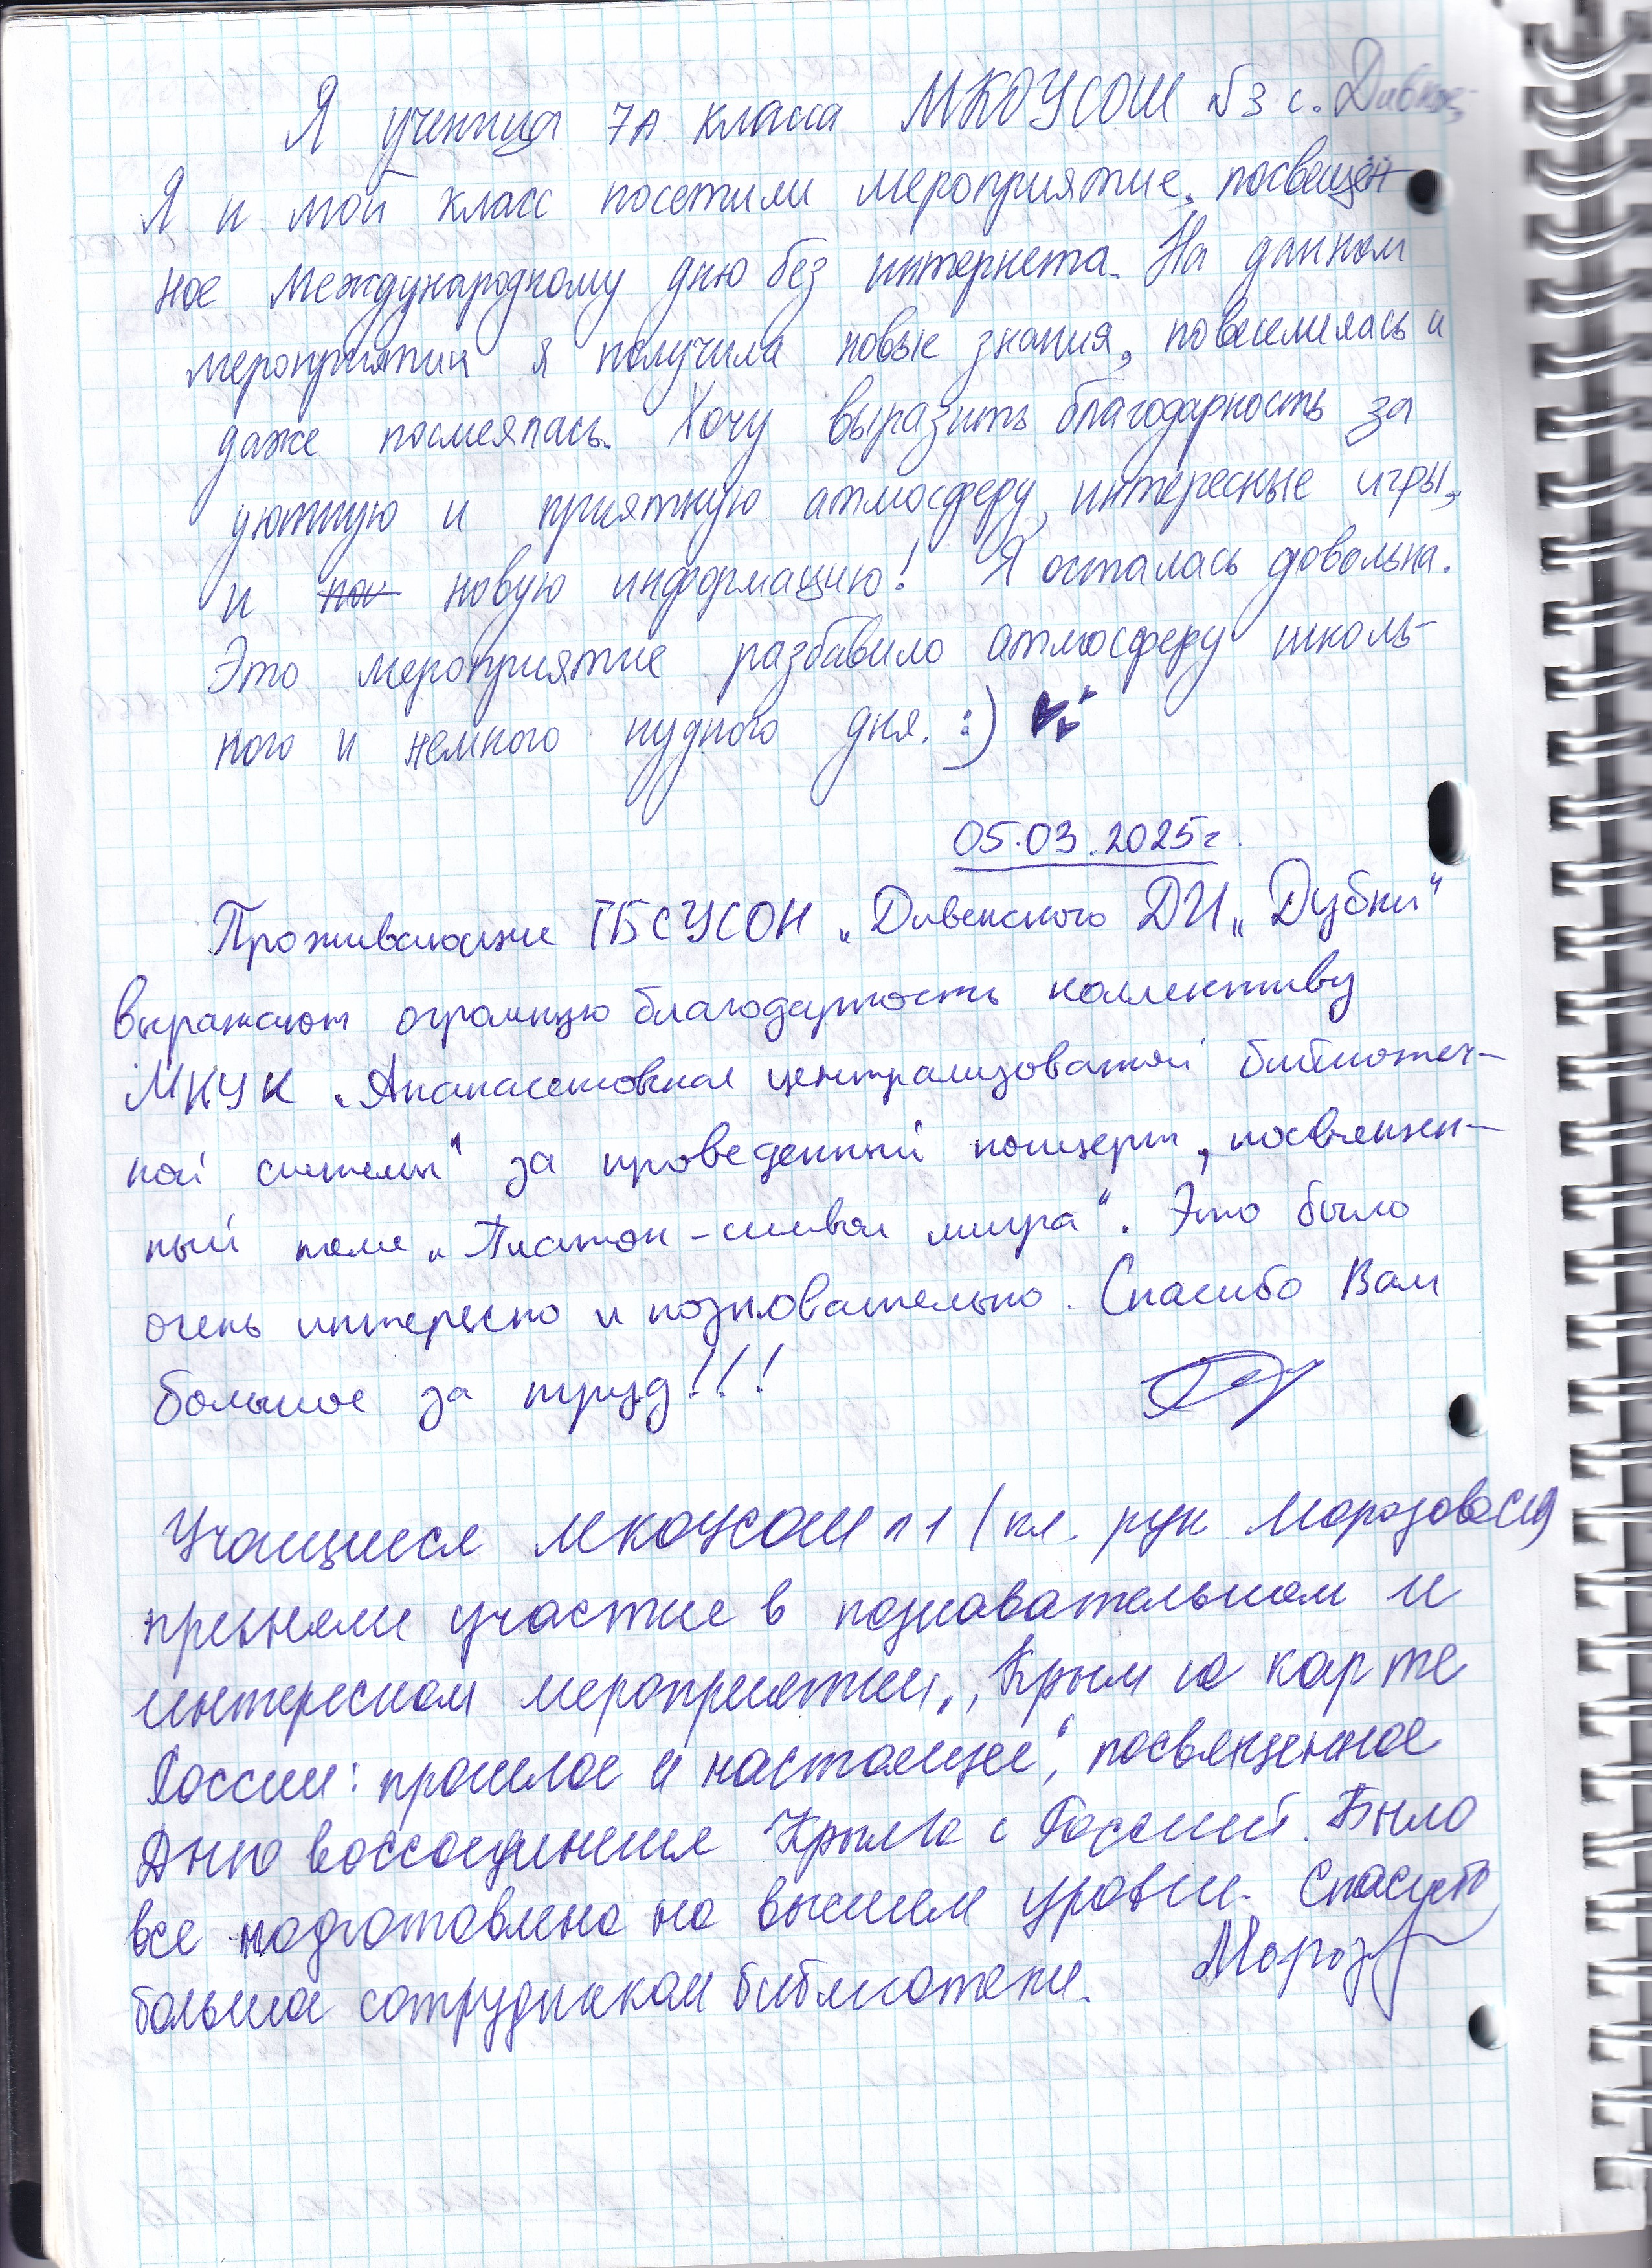 Я ученица 7А класса МКОУСОШ №3 с. Дивное,
Я и мой класс посетили мероприятие, посвещён
ное Международному дню без интернета. На данном
мероприятии я получила новые знания, повеселилась и
даже посмеялась. Хочу выразить благодарность за
уютную и приятную атмосферу, интересные игры,
и нов новую информацию! Я осталась довольна.
Это мероприятие разбавило атмосферу школь-
ного и немного нудного дня. :)
05.03.2025г.
Проживающие ГБСУСОН „Дивенского ДИ „Дубки“
выражают огромную благодарность коллективу
МКУК „Апанасенковская централизованой библиотеч-
ной системы“ за проведенный концерт, посвящен-
ный теме „Платок-символ мира“. Это было
очень интересно и познавательно. Спасибо Вам
большое за труд!!!
Учащиеся МКОУСОШ №1 (кл. рук Морозова
приняли участие в познавательном и
интересном мероприятии, „Крым на карте
России: прошлое и настоящее“, посвященное
Дню воссоединения Крыма с Россией. Было
все подготовлено на высшем уровне. Спасибо
большое сотрудникам библиотеки. Мороз